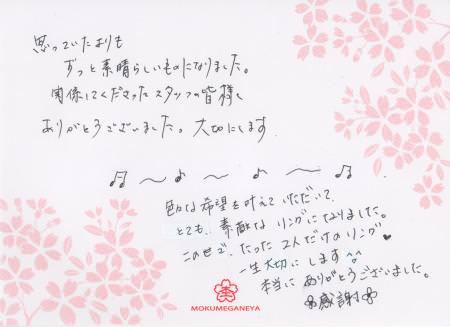 思っていたよりも
ずっと素晴らしいものになりました。
関係してくださったスタッフの皆様、
ありがとうございました。大切にします
♫〜♪〜♪〜♫
色々な希望を叶えていただいて、
とても、素敵なリングになりました。
この世で、たった2人だけのリング♥
一生大切にします^^
本当にありがとうございました。
❀感謝❀
MOKUMEGANEYA